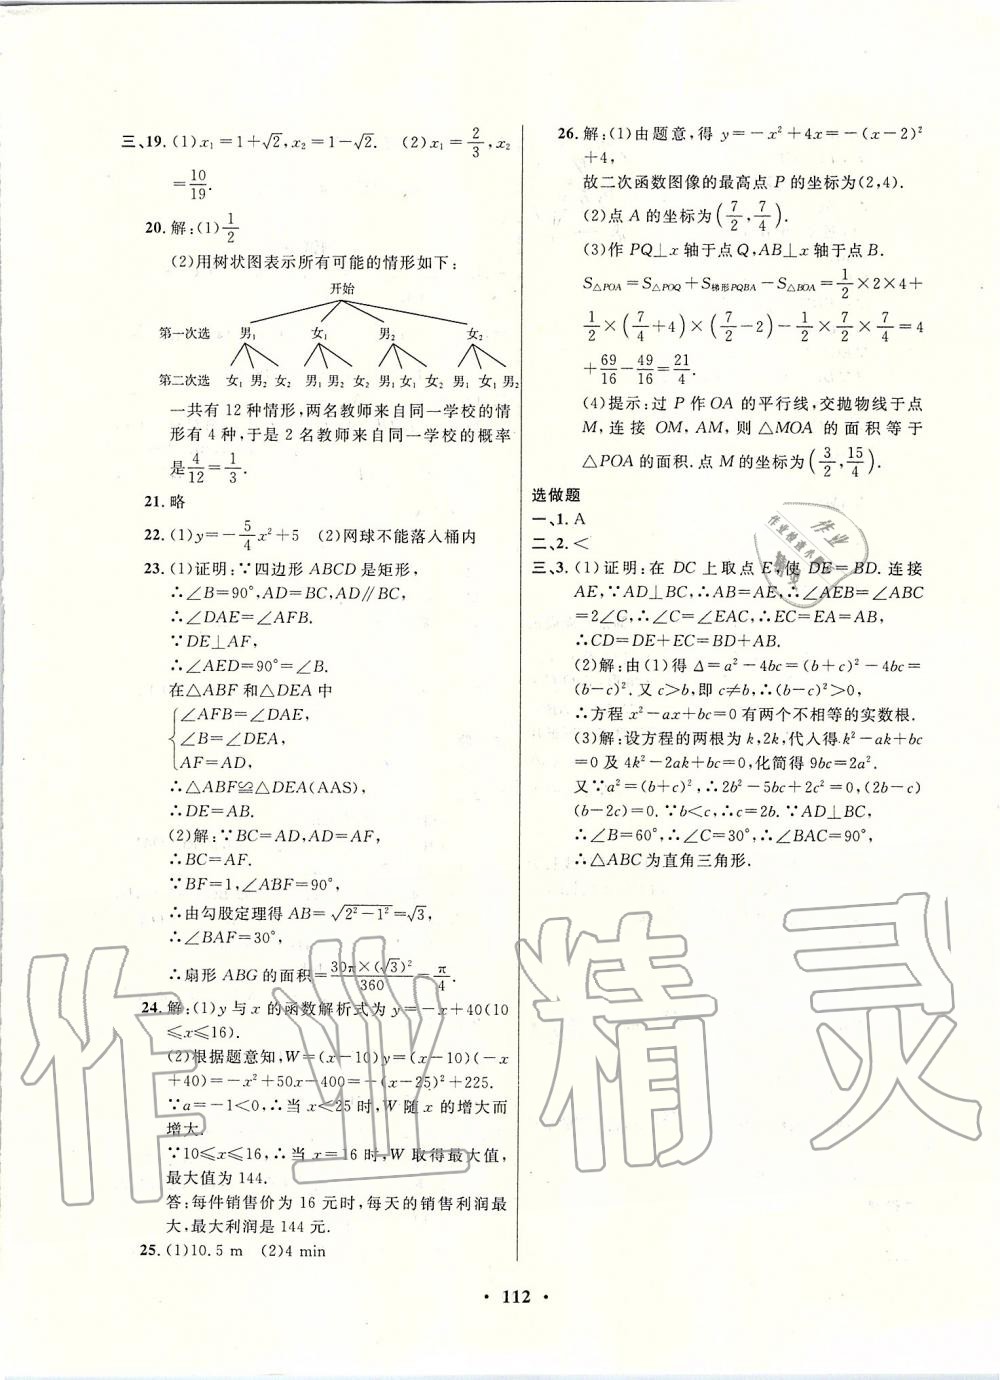 三、19. (1)x₁=1+√2,x₂=1-√2. (2)x₁=2/3,x₂
=10/19.
20. 解:(1)1/2
(2)用树状图表示所有可能的情形如下:
开始
第一次选 男₁ 女₁ 男₂ 女₂
第二次选 女₁ 男₂ 女₂ 男₁ 男₂ 女₂ 男₁ 女₁ 女₂ 男₁ 女₁ 男₂
一共有 12 种情形,两名教师来自同一学校的情
形有 4 种,于是 2 名教师来自同一学校的概率
是4/12=1/3.
21. 略
22. (1)y=-5/4x²+5 (2)网球不能落入桶内
23. (1)证明:∵四边形 ABCD 是矩形,
∴∠B=90°,AD=BC,AD∥BC,
∴∠DAE=∠AFB.
∵DE⊥AF,
∴∠AED=90°=∠B.
在△ABF 和△DEA 中
∠AFB=∠DAE,
∠B=∠DEA,
AF=AD,
∴△ABF≌△DEA(AAS),
∴DE=AB.
(2)解:∵BC=AD,AD=AF,
∴BC=AF.
∵BF=1,∠ABF=90°,
∴由勾股定理得 AB=√(2²-1²)=√3,
∴∠BAF=30°,
∴扇形 ABG 的面积=30π×(√3)²/360=π/4.
24. 解:(1)y 与 x 的函数解析式为 y=-x+40(10
≤x≤16).
(2)根据题意知,W=(x-10)y=(x-10)(-x
+40)=-x²+50x-400=-(x-25)²+225.
∵a=-1<0,∴当 x<25 时,W 随 x 的增大而
增大.
∵10≤x≤16,∴当 x=16 时,W 取得最大值,
最大值为 144.
答:每件销售价为 16 元时,每天的销售利润最
大,最大利润是 144 元.
25. (1)10.5 m (2)4 min
26. 解:(1)由题意,得 y=-x²+4x=-(x-2)²
+4,
故二次函数图像的最高点 P 的坐标为(2,4).
(2)点 A 的坐标为(7/2,7/4).
(3)作 PQ⊥x 轴于点 Q,AB⊥x 轴于点 B.
S△POA=S△POQ+S梯形PQBA-S△BOA=1/2×2×4+
1/2×(7/4+4)×(7/2-2)-1/2×7/2×7/4=4
+69/16-49/16=21/4.
(4)提示:过 P 作 OA 的平行线,交抛物线于点
M,连接 OM,AM,则△MOA 的面积等于
△POA 的面积.点 M 的坐标为(3/2,15/4).
选做题
一、1. A
二、2. <
三、3. (1)证明:在 DC 上取点 E,使 DE=BD.连接
AE,∵AD⊥BC,∴AB=AE,∴∠AEB=∠ABC
=2∠C,∴∠C=∠EAC,∴EC=EA=AB,
∴CD=DE+EC=BD+AB.
(2)解:由(1)得 Δ=a²-4bc=(b+c)²-4bc=
(b-c)².又 c>b,即 c≠b,∴(b-c)²>0,
∴方程 x²-ax+bc=0 有两个不相等的实数根.
(3)解:设方程的两根为 k,2k,代入得.k²-ak+bc
=0 及 4k²-2ak+bc=0,化简得 9bc=2a².
又∵a²=(b+c)²,∴2b²-5bc+2c²=0,(2b-c)
(b-2c)=0.∵b<c,∴c=2b.∵AD⊥BC,
∴∠B=60°,∴∠C=30°,∴∠BAC=90°,
∴△ABC 为直角三角形.
· 112 ·
作业精灵